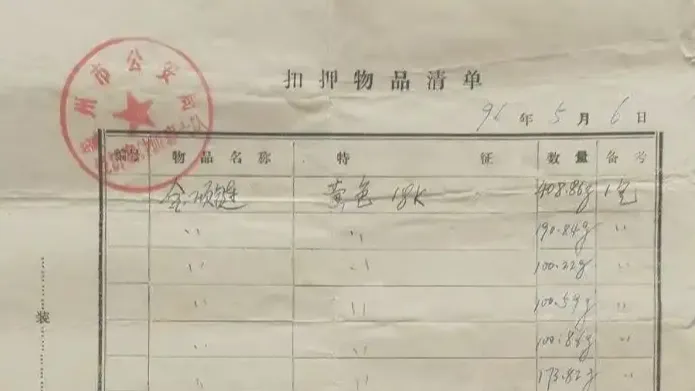 州市公安局
扣押物品清单
96年5月6日
编号 物品名称 特征 数量 备考
金项链 黄色 18K 408.86g 1包
〃 〃 190.84g 〃
〃 〃 100.22g 〃
〃 〃 100.59g 〃
〃 〃 100.86g 〃
〃 〃 173.82g 〃
装